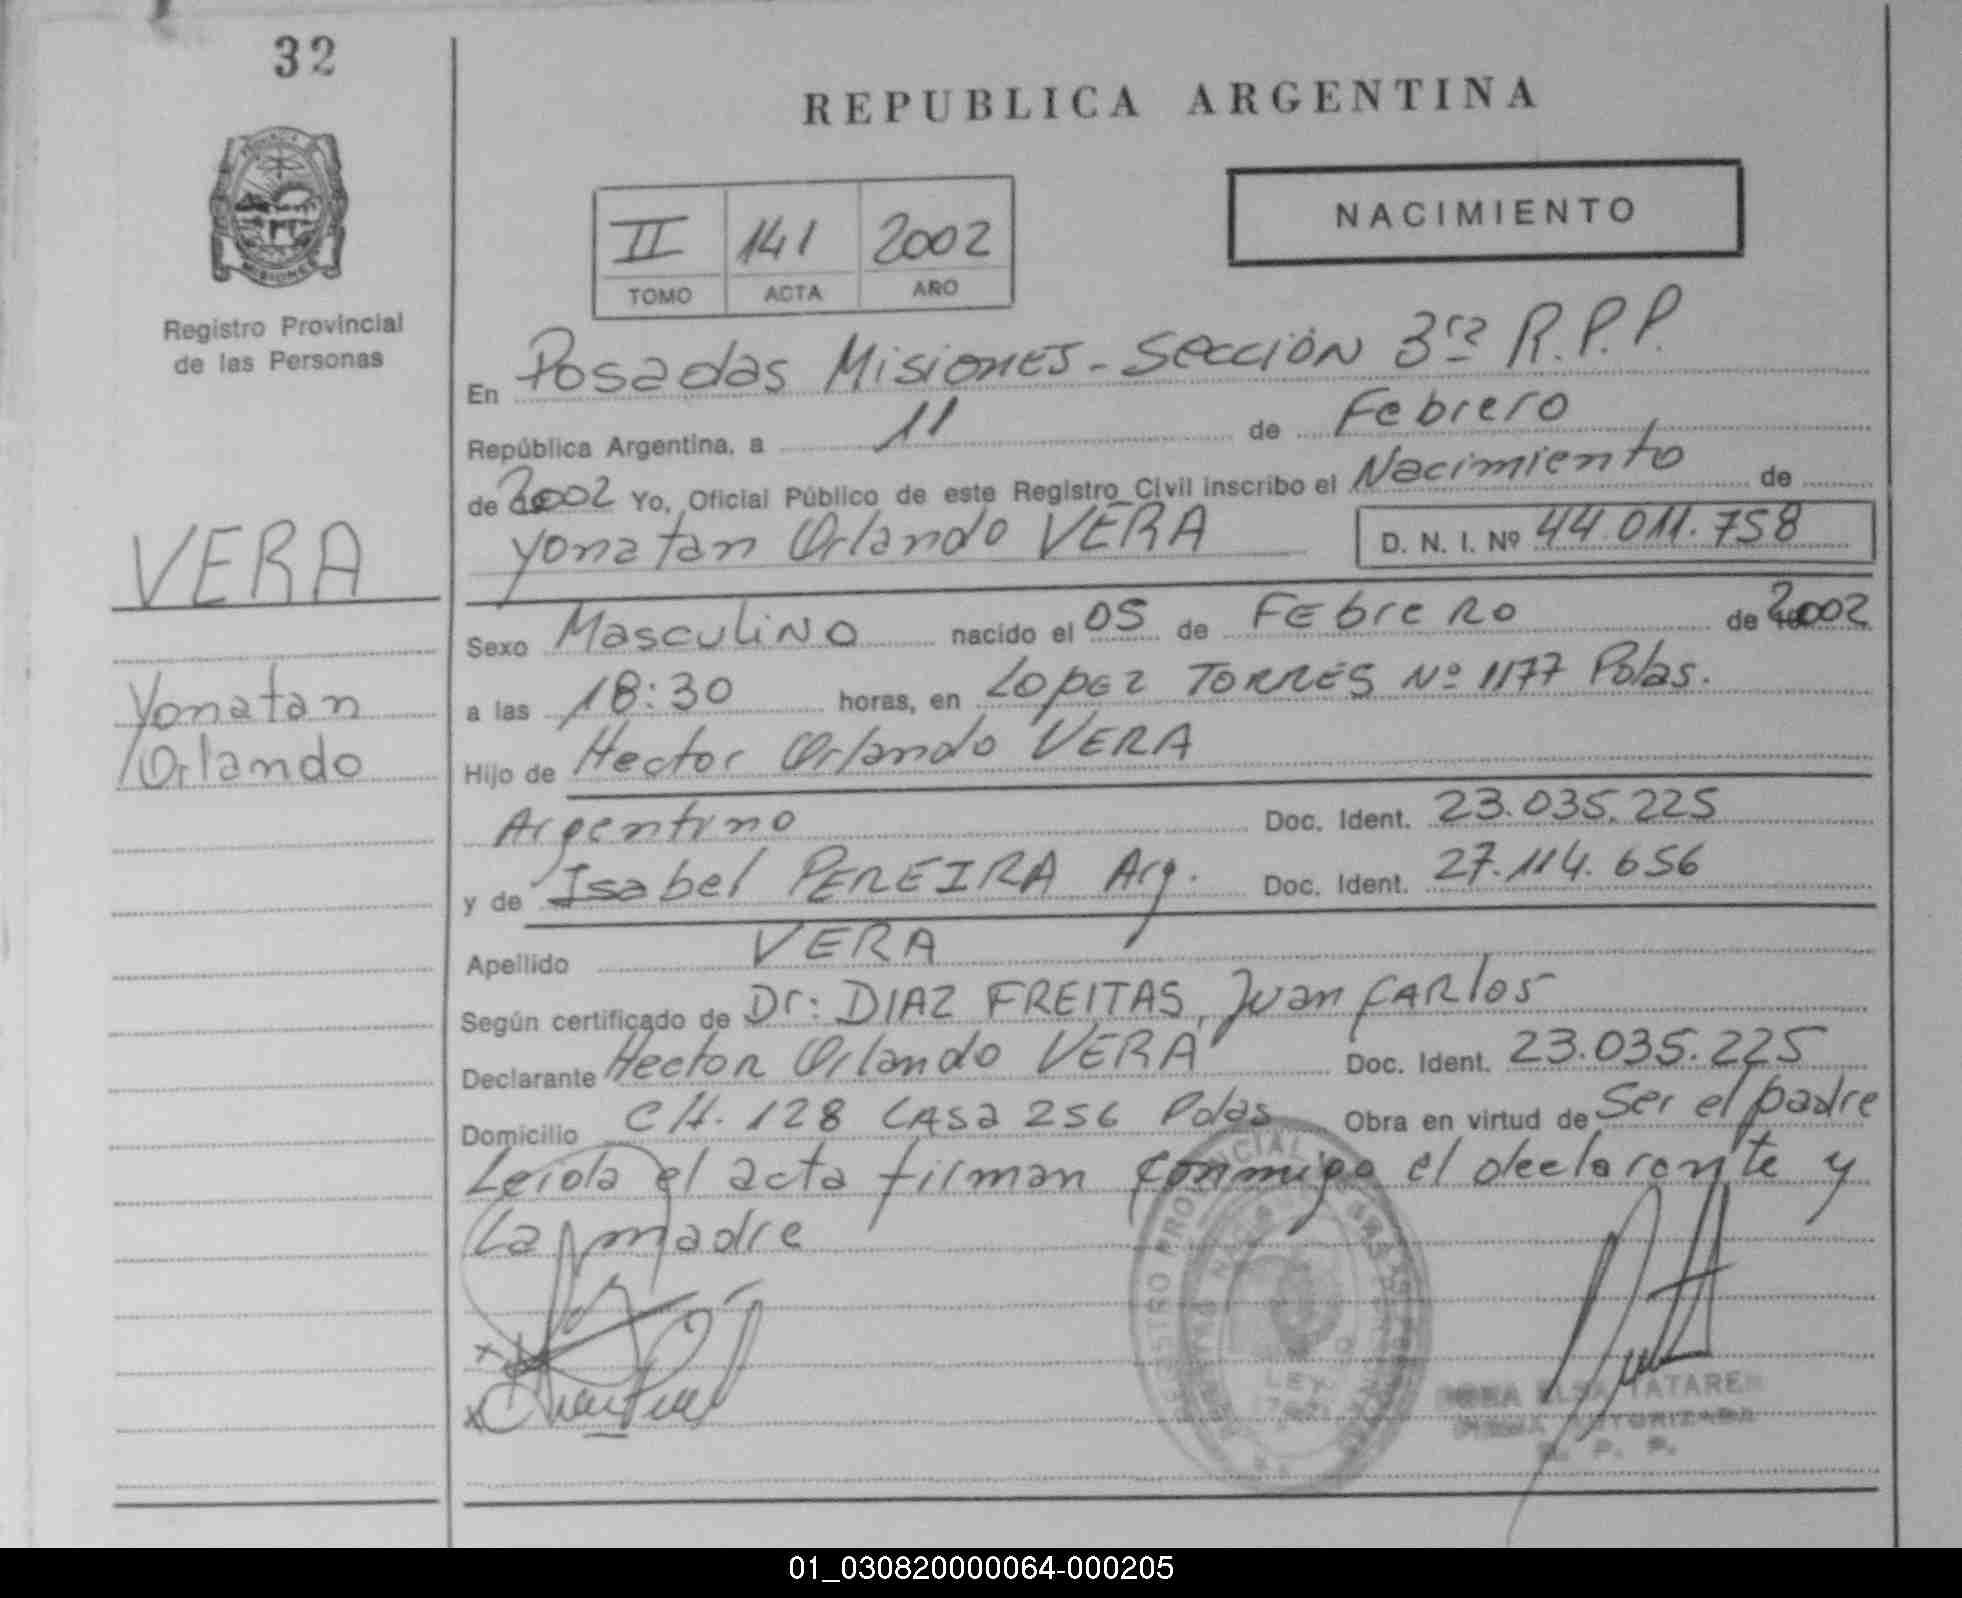 32
REPUBLICA ARGENTINA
NACIMIENTO
II 141 2002
TOMO ACTA AÑO
Registro Provincial
de las Personas
En Posadas Misiones - Sección 3ra R.P.P.
República Argentina, a 11 de Febrero
de 2002 Yo, Oficial Público de este Registro Civil inscribo el Nacimiento de
Yonatan Orlando VERA D. N. I. Nº 44.011.758
VERA
Yonatan
Orlando
Sexo Masculino nacido el 05 de Febrero de 2002
a las 18:30 horas, en Lopez Torres Nº 1177 Pdas.
Hijo de Hector Orlando VERA
Argentino Doc. Ident. 23.035.225
y de Isabel PEREIRA Arg. Doc. Ident. 27.114.656
Apellido VERA
Según certificado de Dr: DIAZ FREITAS, Juan Carlos
Declarante Hector Orlando VERA Doc. Ident. 23.035.225
Domicilio CH. 128 Casa 256 Pdas Obra en virtud de Ser el padre
Leida el acta firman conmigo el declarante y
La madre
LEY
ELSA TATAREN
FIRMA AUTORIZADA
R. P. P.
01_030820000064-000205